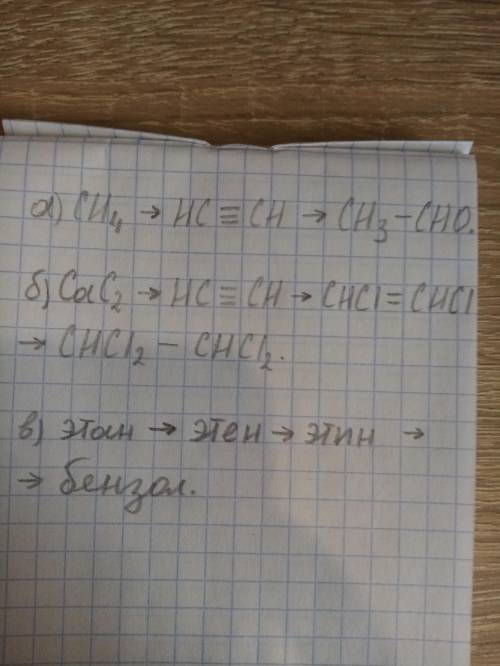 а) CH₄ → HC ≡ CH → CH₃ – CHO.
б) CaC₂ → HC ≡ CH → CHCl = CHCl
→ CHCl₂ – CHCl₂.
в) этан → этен → этин →
→ бензол.